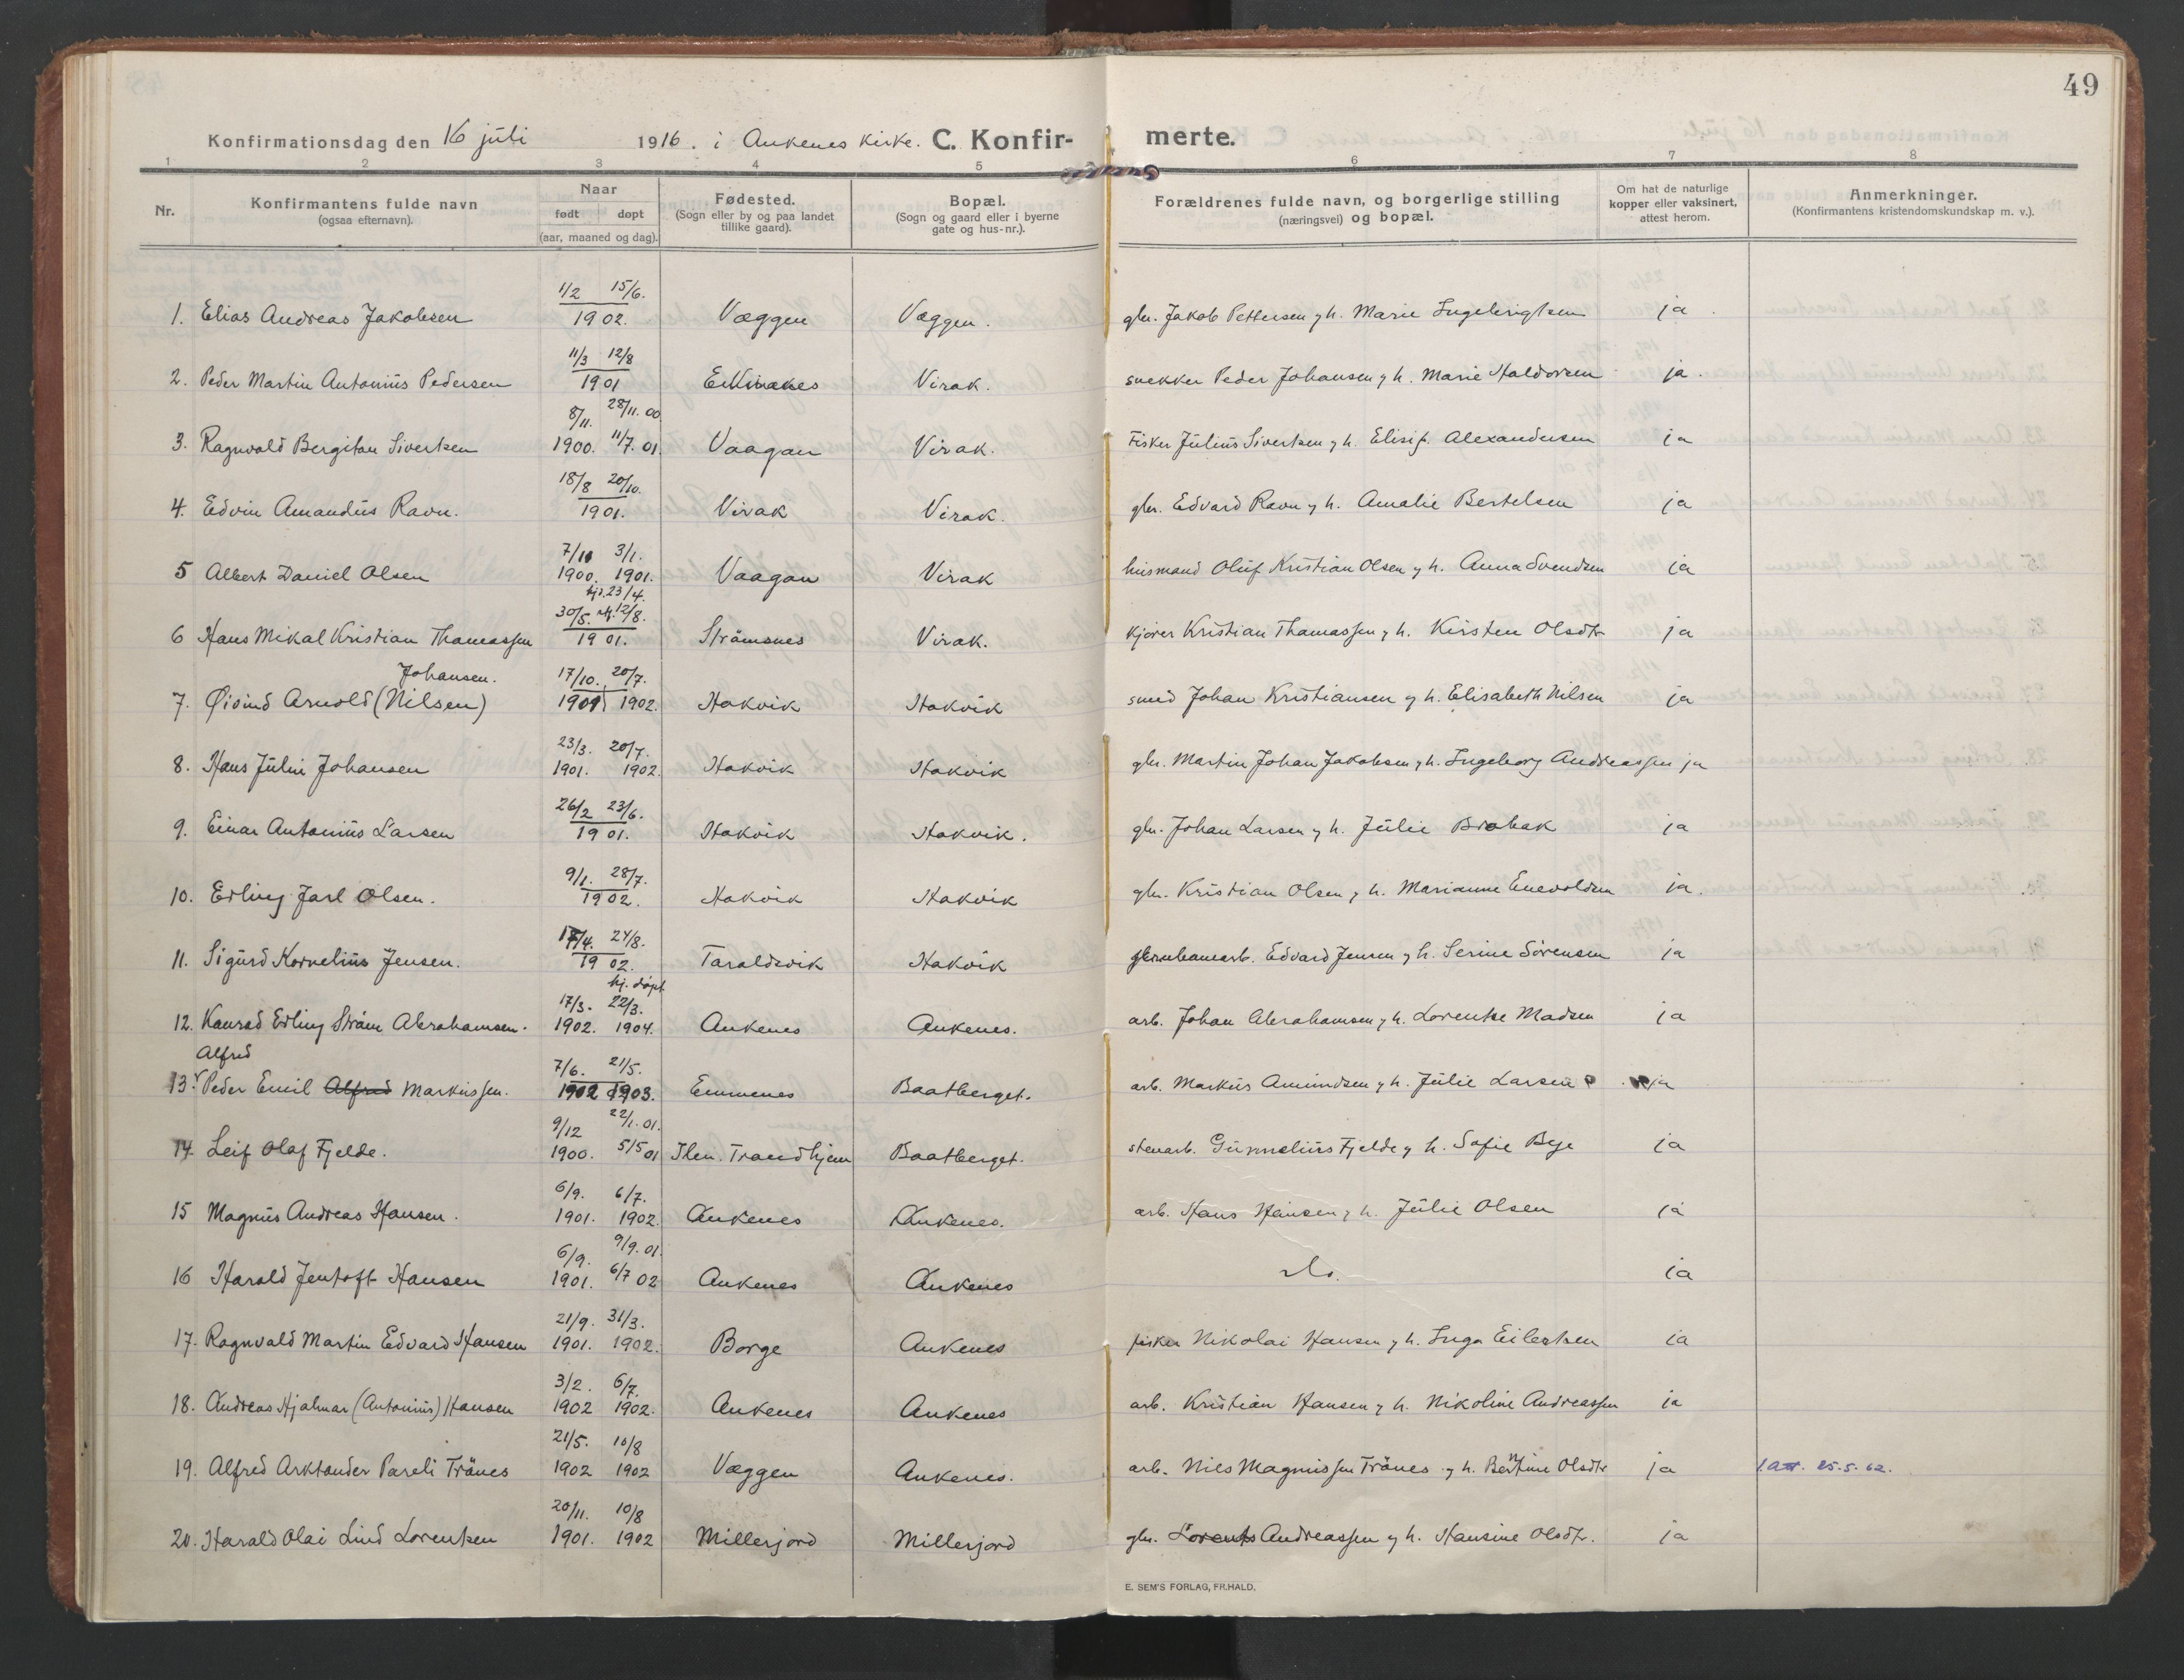 49
Konfirmationsdag den 16 juli 1916. i Ankenes kirke. C. Konfir- merte.
1 2 3 4 5 6 7 8
Nr. Konfirmantens fulde navn (ogsaa efternavn). Naar født døpt (aar, maaned og dag). Fødested. (Sogn eller by og paa landet tillike gaard). Bopæl. (Sogn og gaard eller i byerne gate og hus-nr.). Forældrenes fulde navn, og borgerlige stilling (næringsvei) og bopæl. Om hat de naturlige kopper eller vaksinert, attest herom. Anmerkninger. (Konfirmantens kristendomskundskap m. v.).
1/2 15/6.
1. Elias Andreas Jakobsen 1902. Væggen Væggen. gbr. Jakob Pettersen y h. Marie Ingebrigtsen ja
11/3 12/8
2. Peder Martin Antonius Pedersen 1901 Virak. snekker Peder Johansen y h. Marie Haldorsen ja.
8/11. 28/11.00
3. Ragnvald Bergitan Sivertsen 1900. 11/7.01. Vaagan Virak. Fisker Julius Sivertsen y h. Elisif. Alexandersen ja
18/8 20/10.
4. Edvin Amandus Ravn. 1901. Virak Virak. gbr. Edvard Ravn y h. Amalie Bertelsen ja
7/10 3/1.
5 Albert Daniel Olsen 1900. 1901. Vaagan Virak husmand Oluf Kristian Olsen y h. Anna Svendsen ja
hjd. 23/4.
30/5. 12/8.
6 Hans Mikal Kristian Thomassen 1901. Strömsnes Virak. kjører Kristian Thomassen y h. Kirsten Olsdtr ja
Johansen. 17/10. 20/7.
7. Øivind Arnold (Nilsen) 1901 1902. Hakvik Hakvik smed Johan Kristiansen y h. Elisabeth Nilsen ja
23/3. 20/7.
8. Hans Julin Johansen 1901. 1902. Hakvik Hakvik gbr. Martin Johan Jakobsen y h. Ingeborg Andreassen ja
26/2 23/6.
9. Einar Antonius Larsen 1901. Hakvik Hakvik. gbr. Johan Larsen y h. Julie Brobak ja
9/1. 28/7.
10. Erling Jarl Olsen. 1902. Hakvik Hakvik gbr. Kristian Olsen y h. Marianne Enevoldsen ja.
24/8.
11. Sigurd Kornelius Jensen. 1902. Taraldsvik Hakvik Edvard Jensen y h. Serine Sörensen ja
hj. døpt
17/3. 22/3.
12. Konrad Erling Ström Abrahamsen. 1902. 1904. Ankenes Ankenes. arb. Johan Abrahamsen y h. Lorentse Madsen ja
Alfred 7/6. 21/5.
13. Peder Emil Alfred Markussen. 1902 1903. Emmenes Baatberget. arb. Markus Amundsen y h. Julie Larsen ja
9/12 22/1.01.
14 Leif Olaf Fjelde. 1900. 5/5 01 Ilen. Trondhjem Baatberget. stenarb. Gunnelius Fjelde y h. Sofie Bye ja
6/9. 6/7.
15 Magnus Andreas Hansen. 1901. 1902. Ankenes Ankenes. arb. Hans Hansen y h. Julie Olsen ja
6/9. 9/9.01.
16 Harald Jentoft Hansen 1901. 6/7 02 Ankenes Ankenes do. ja
21/9. 31/3.
17. Ragnvald Martin Edvard Hansen 1901. 1902. Borge Ankenes fisker Nikolai Hansen y h. Inga Eilertsen ja
3/2. 6/7.
18. Andreas Hjalmar (Antonius) Hansen 1902 1902. Ankenes Ankenes arb. Kristian Hansen y h. Nikoline Andreassen ja
21/5. 10/8
19. Alfred Arktander Pareli Trönes 1902 1902 Væggen Ankenes. arb. Nils Magnussen Trönes y h. Berntine Olsdtr ja l.att. 25.5.62.
20/11. 10/8
20. Harald Olai Lind Lorentsen 1901. 1902 Millerjord Millerjord gbr. Lorents Andreassen y h. Hansine Olsdtr. ja
E. SEM'S FORLAG, FR.HALD.